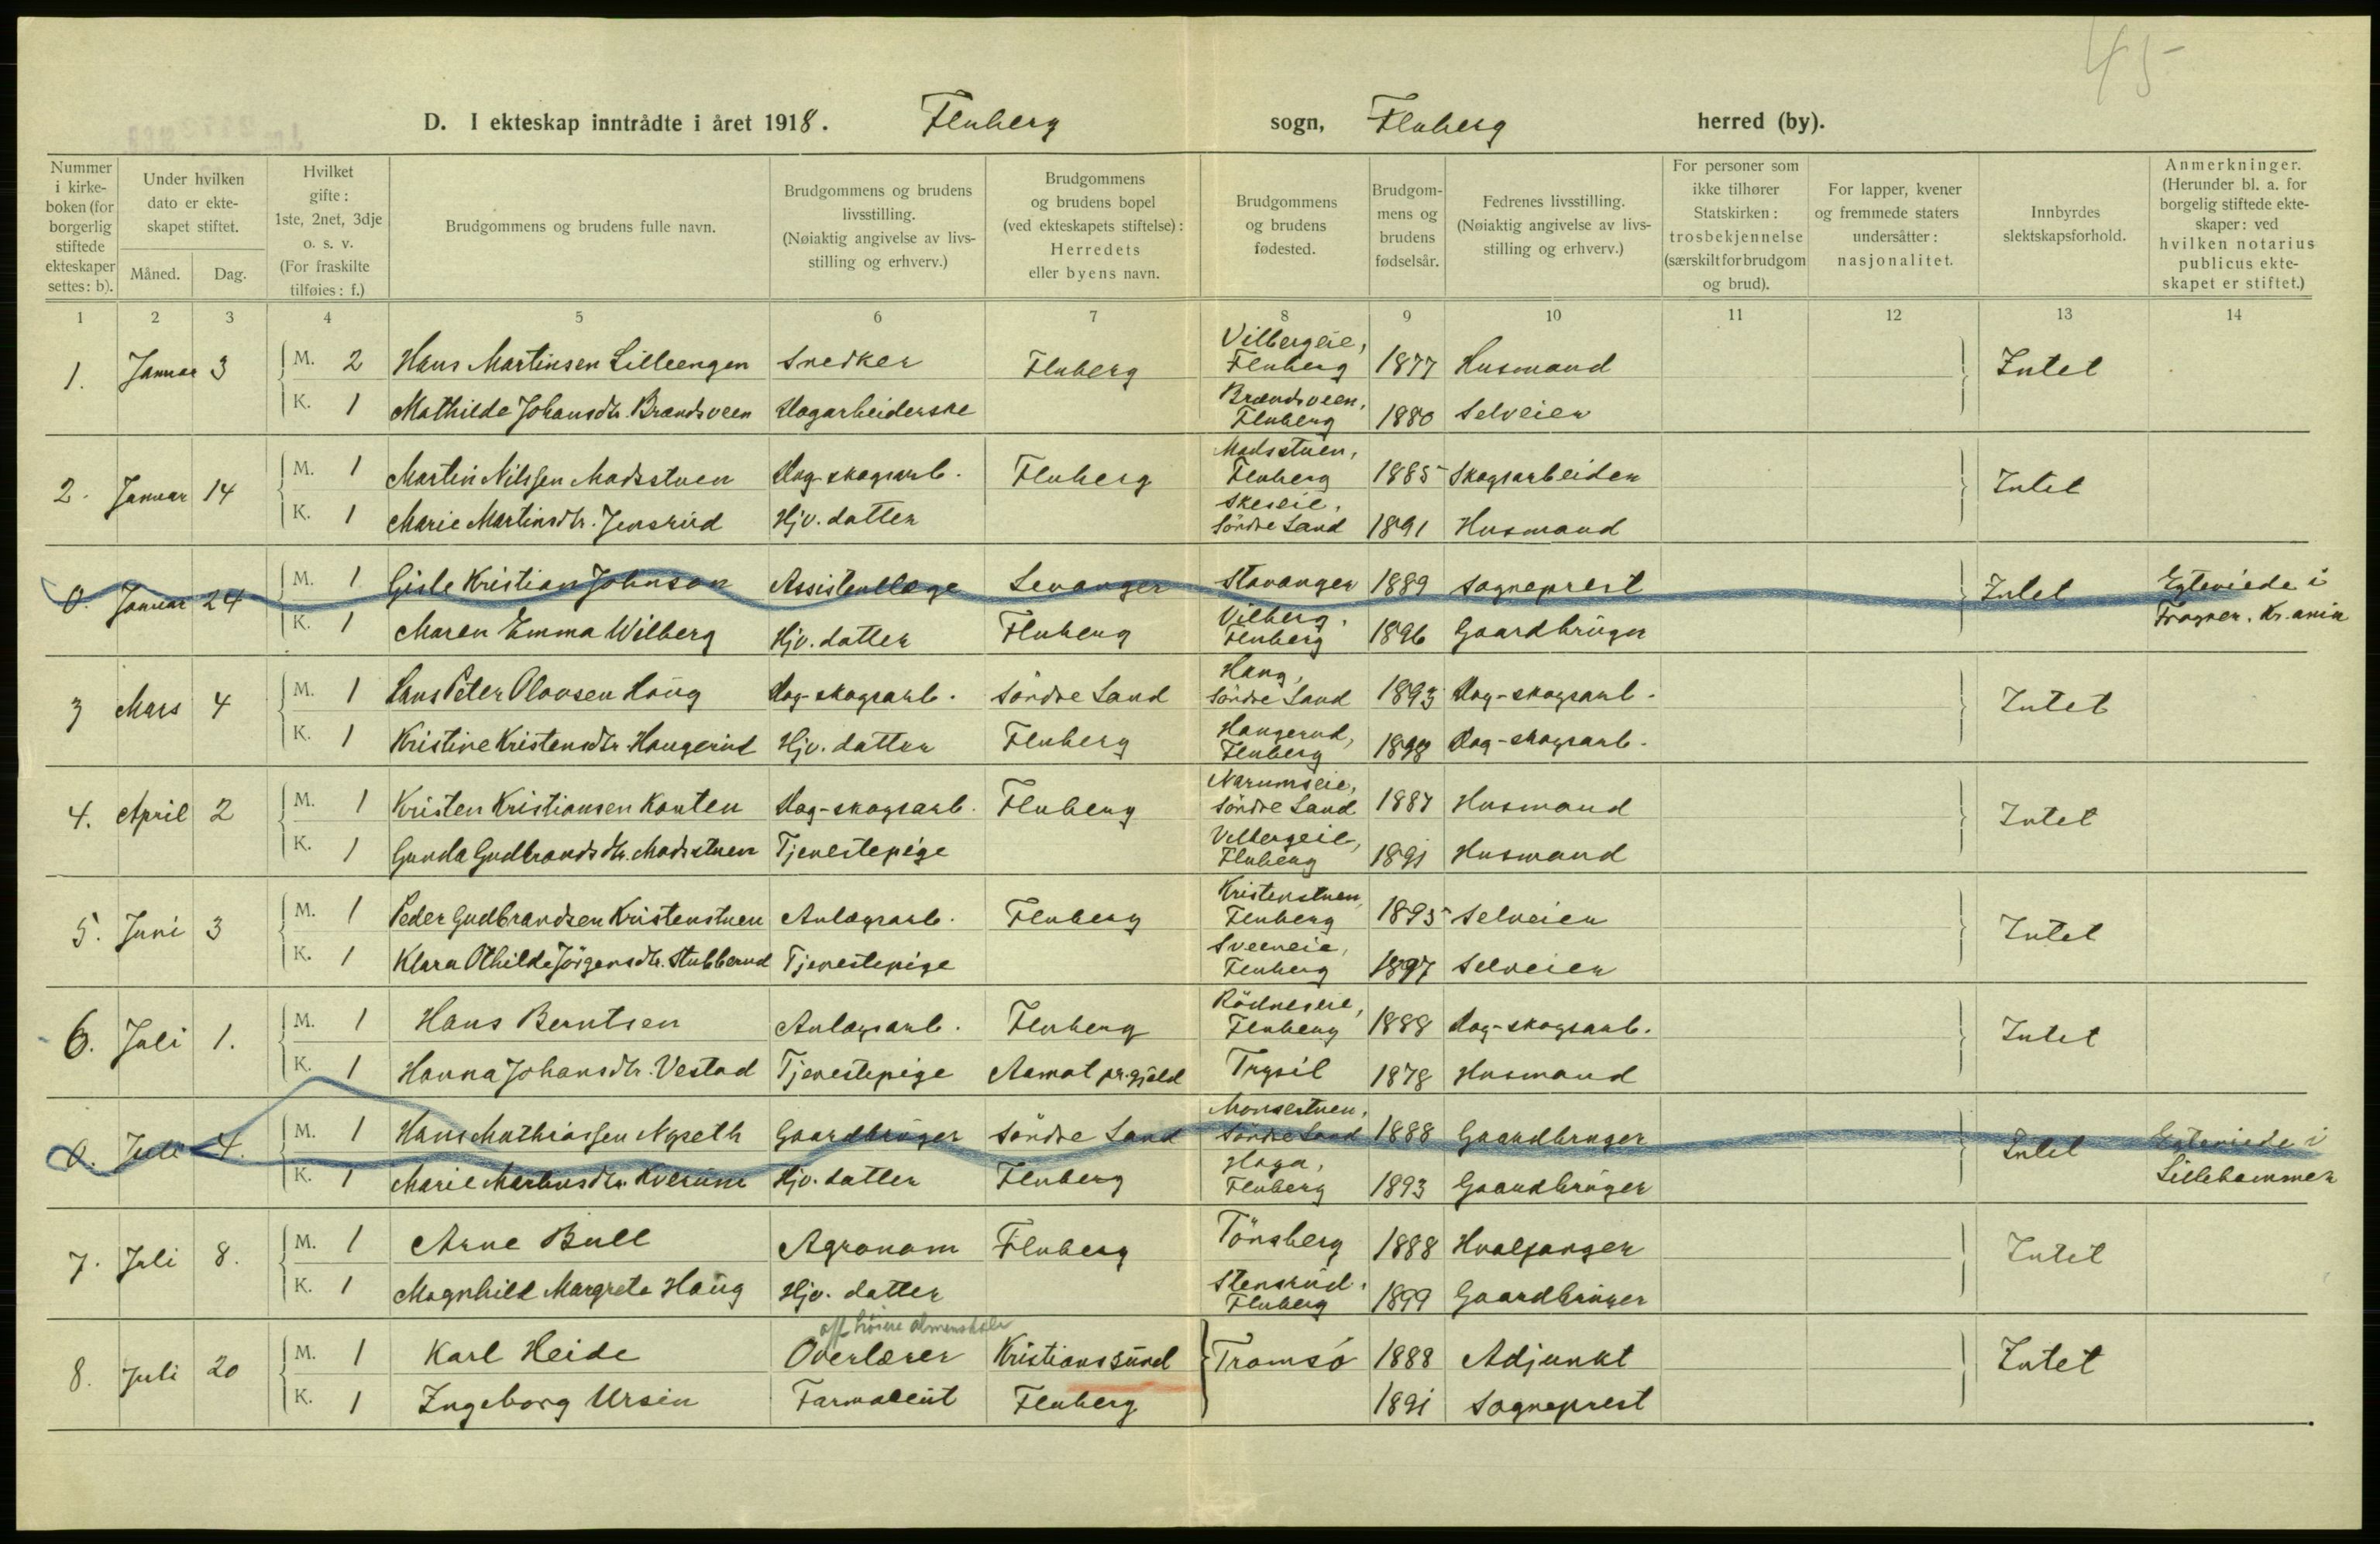 45
D. I ekteskap inntrådte i året 1918. Fluberg sogn, Fluberg herred (by).
Nummer i kirke-boken (for borgerlig stiftede ekteskaper settes: b).
Under hvilken dato er ekte-skapet stiftet.
Måned. Dag.
Hvilket gifte: 1ste, 2net, 3dje o. s. v. (For fraskilte tilføies: f.)
Brudgommens og brudens fulle navn.
Brudgommens og brudens livsstilling. (Nøiaktig angivelse av livs-stilling og erhverv.)
Brudgommens og brudens bopel (ved ekteskapets stiftelse): Herredets eller byens navn.
Brudgommens og brudens fødested.
Brudgom-mens og brudens fødselsår.
Fedrenes livsstilling. (Nøiaktig angivelse av livs-stilling og erhverv.)
For personer som ikke tilhører Statskirken: trosbekjennelse (særskilt for brudgom og brud).
For lapper, kvener og fremmede staters undersåtter: nasjonalitet.
Innbyrdes slektskapsforhold.
Anmerkninger. (Herunder bl. a. for borgelig stiftede ekte-skaper: ved hvilken notarius publicus ekte-skapet er stiftet.)
1 2 3 4 5 6 7 8 9 10 11 12 13 14
1. Januar 3 M. 2 Hans Martinsen Lilleengen Snedker Fluberg Vilbergeie, Fluberg 1877 Husmand Intet
K. 1 Mathilde Johansdtr. Brændsveen Dagarbeiderske Brændsveen, Fluberg 1880 Selveier
2. Januar 14 M. 1 Martin Nilssen Madsstuen Dag-skogsarb. Fluberg Madsstuen, Fluberg 1885 Skogsarbeider Intet
K. 1 Marie Martinsdtr. Jensrud Hjv. datter Skeseie, Söndre Land 1891 Husmand
0. Januar 24 M. 1 Gisle Kristian Johnson Assistentlæge Levanger Stavanger 1889 Sogneprest Intet Egteviede i
K. 1 Maren Emma Wilberg Hjv. datter Fluberg Vilberg, Fluberg 1896 Gaardbruger Frogner. Kr.ania
3 Mars 4 M. 1 Hans Peter Olavsen Haug Dag-skogsarb. Söndre Land Haug, Söndre Land 1893 Dag-skogsarb. Intet
K. 1 Kristine Kristensdtr. Haugerud Hjv. datter Fluberg Haugerud, Fluberg 1898 Dag-skogsarb.
4. April 2 M. 1 Kristen Kristiansen Kanten Dag-skogsarb. Fluberg Narumseie, Söndre Land 1887 Husmand Intet
K. 1 Gunda Gudbrandsdtr. Madsstuen Tjenestepige Vilbergeie, Fluberg 1891 Husmand
5. Juni 3 M. 1 Peder Gudbrandsen Kristenstuen Anlægsarb. Fluberg Kristenstuen, Fluberg 1895 Selveier Intet
K. 1 Klara Othilde Jörgensdtr. Stubberud Tjenestepige Sveeneie, Fluberg 1897 Selveier
6. Juli 1. M. 1 Hans Berntsen Anlægsarb. Fluberg Rödneseie, Fluberg 1888 Dag-skogsarb. Intet
K. 1 Hanna Johansdtr. Vestad Tjenestepige Aamot pr.gjeld Trysil 1878 Husmand
0. Juli 4. M. 1 Hans Mathiassen Nyseth Gaardbruger Söndre Land Monsestuen, Söndre Land 1888 Gaardbruger Intet Egteviede i
K. 1 Marie Martinsdtr. Kverum Hjv. datter Fluberg Haga, Fluberg 1893 Gaardbruger Lillehammer
7. Juli 8. M. 1 Arne Bull Agronom Fluberg Tönsberg 1888 Hvalfanger Intet
K. 1 Magnhild Margrete Haug Hjv. datter Stensrud. Fluberg 1899 Gaardbruger
off. höiere almenskole
8. Juli 20 M. 1 Karl Heide Overlærer Kristianssund Tromsö 1888 Adjunkt Intet
K. 1 Ingeborg Ursin Farmaceut Fluberg 1891 Sogneprest